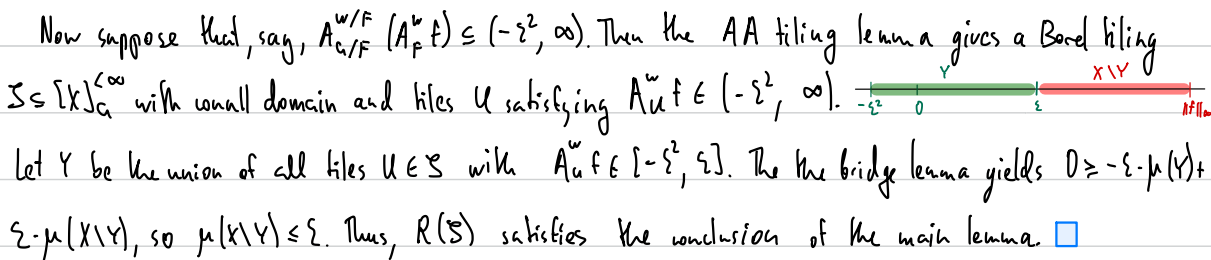 Now suppose that, say, A^{w/F}_{G/F} (A^w_F f) ⊆ (-ε², ∞). Then the AA tiling lemma gives a Borel tiling
S ⊆ [X]^{<∞}_G with conull domain and tiles U satisfying A^w_U f ∈ (-ε², ∞). Y X\Y -ε² 0 ε ‖f‖∞
Let Y be the union of all tiles U ∈ S with A^w_U f ∈ [-ε², ε]. The the bridge lemma yields 0 ≥ -ε·μ(Y)+
ε·μ(X\Y), so μ(X\Y) ≤ ε. Thus, R(S) satisfies the conclusion of the main lemma. □